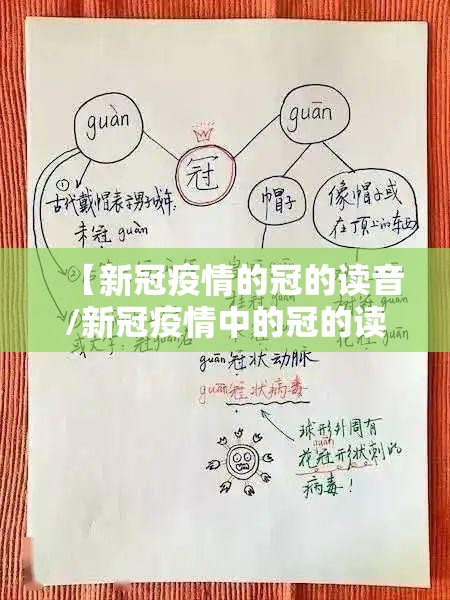 guàn
guān
冠
①
古代戴帽表示男子成年.
未冠 guàn
帽子
像帽子或
在顶上的东西
【新冠疫情的冠的读音
/新冠疫情中的冠的读
guān 冠状动脉
guān 冠状病毒
球形外周有
guān
花冠形状刺的
病毒!